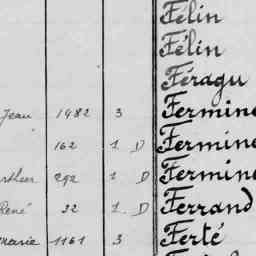 Félin
Félin
Féragu
Jean 1982 3 Fermine
162 1 D Fermine
292 1 D Fermine
René 22 1 D Ferrand
marie 1161 3 Ferté